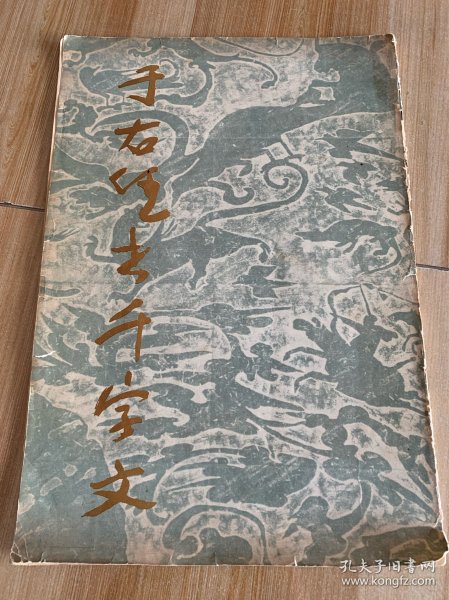 于右任书千字文
孔夫子旧书网
www.kongfz.com